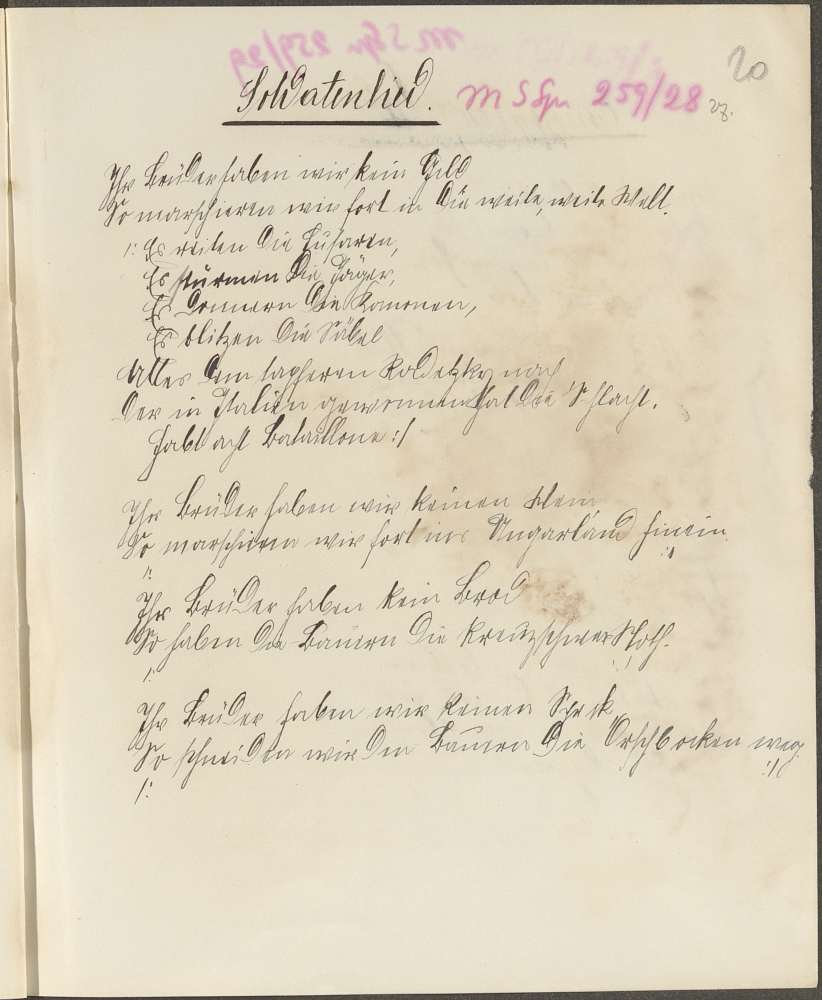 Soldatenlied.
M S Spr 259/28
20
Ihr Brüder haben wir kein Geld
So marschieren wir fort in die weite, weite Welt.
/: Es reiten die Husaren,
Es stürmen die Jäger,
Es donnern die Kanonen,
Es blitzen die Säbel
Alles dem tapferen Radetzky nach
Der in Italien gewonnen hat die Schlacht.
Habt acht Bataillone :/
Ihr Brüder haben wir keinen Wein
So marschieren wir fort ins Ungarland hinein.
/: :/
Ihr Brüder haben kein Brod
So haben die Bauern die kreuzschwer Noth.
/:
Ihr Brüder haben wir keinen Speck
So schneiden wir den Bauern die Orschbocken weg.
/: :/